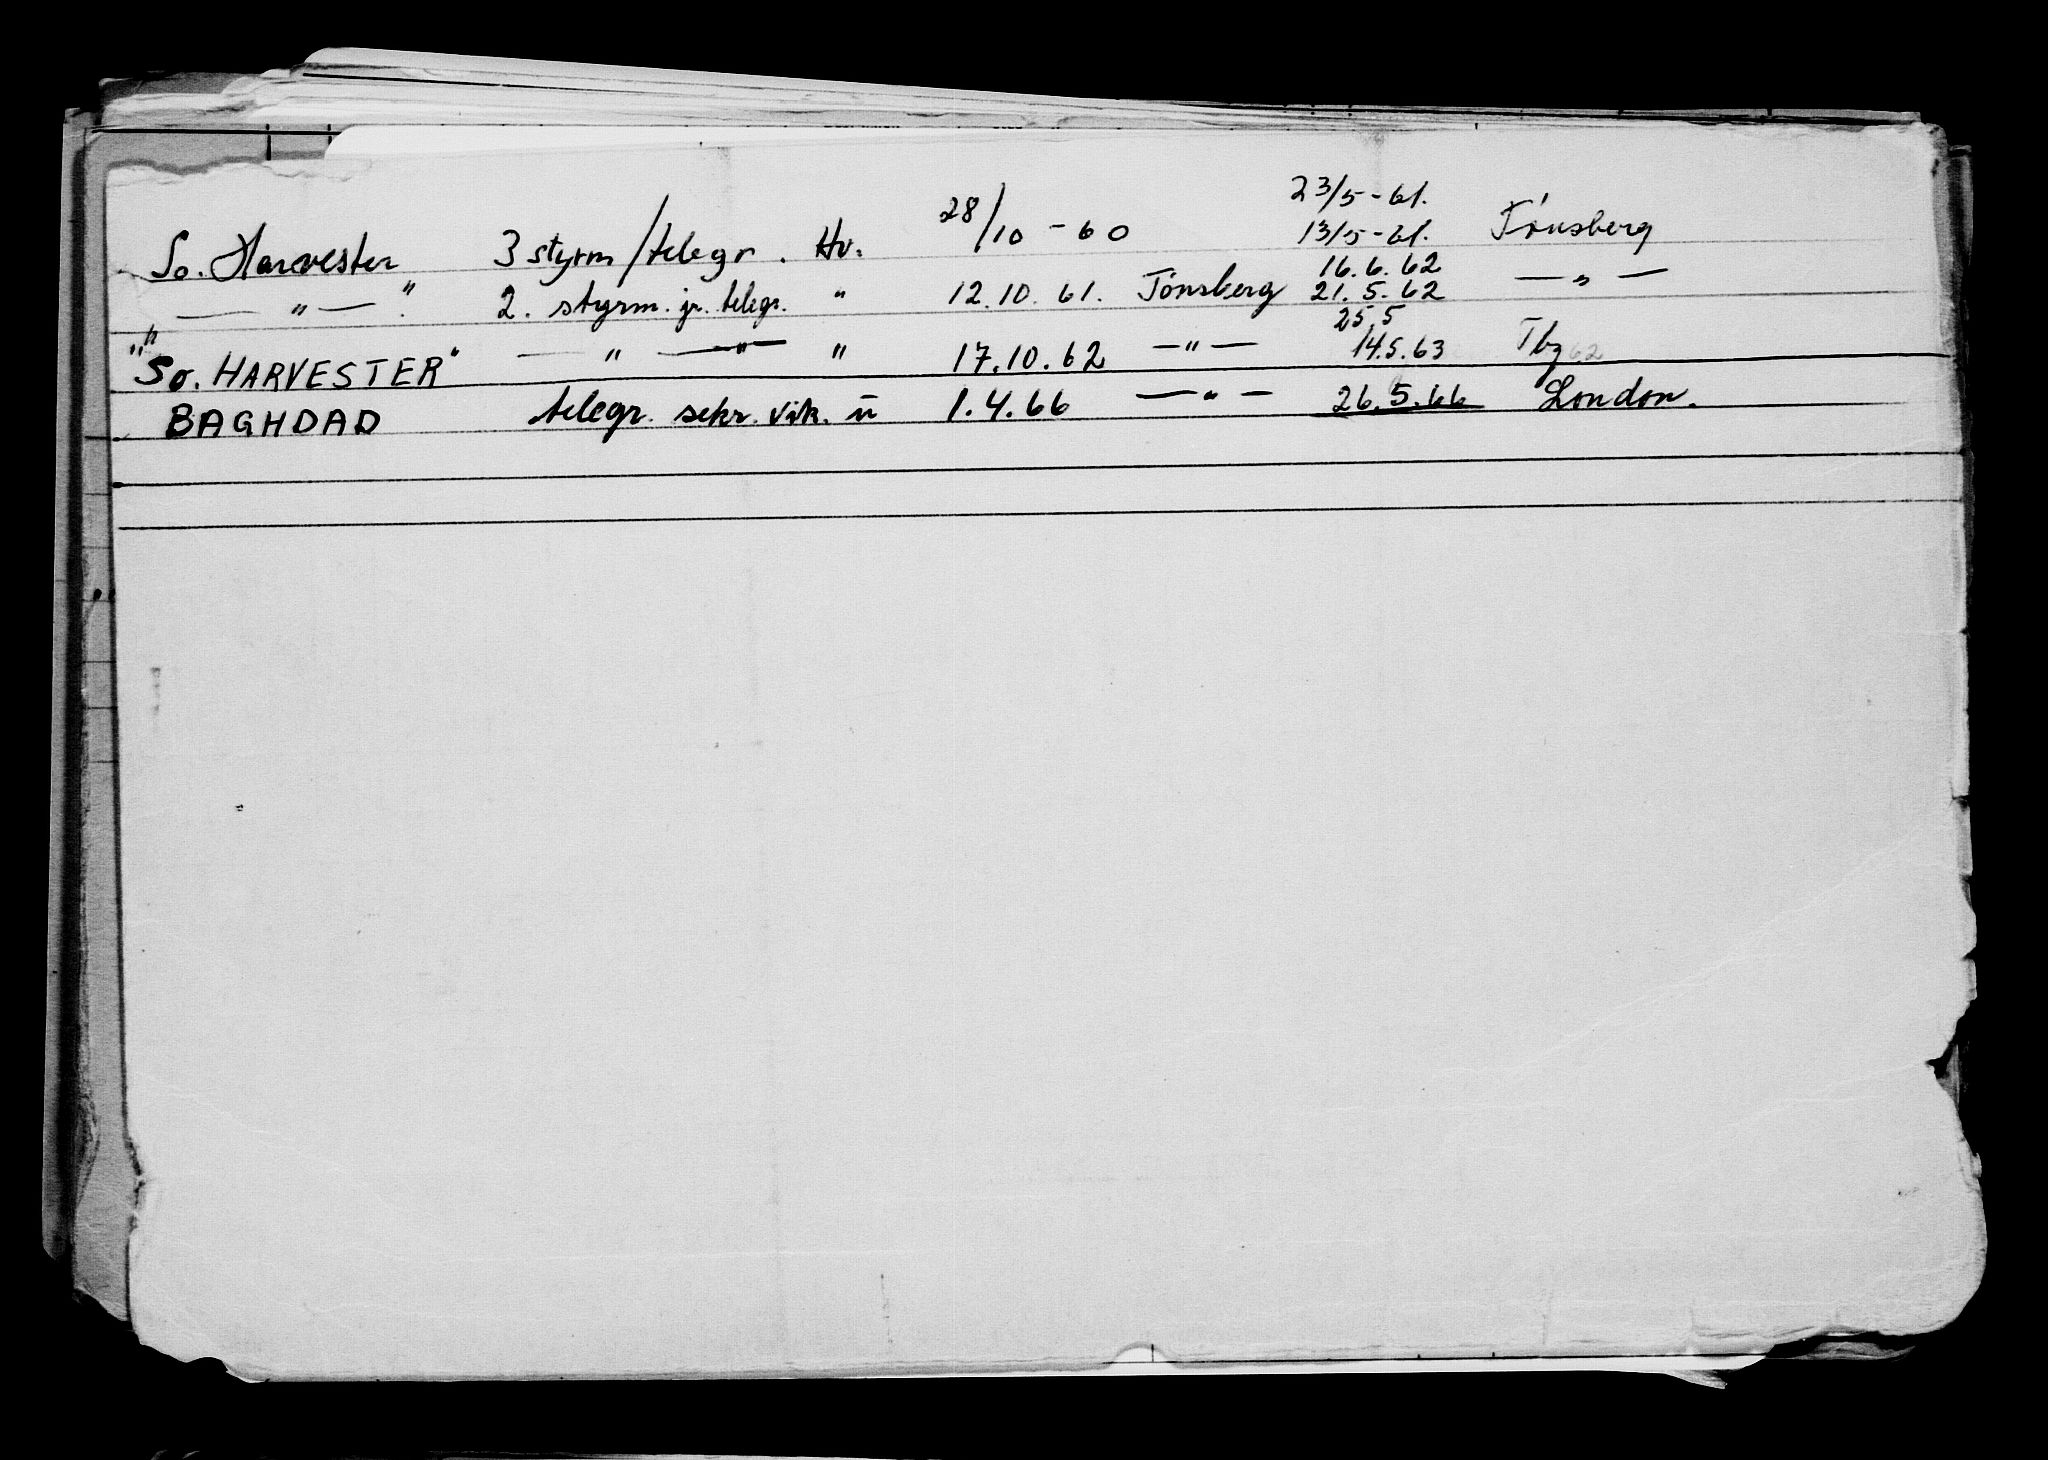 23/5-61.
So. Harvester 3 styrm/telegr. Hv. 28/10-60 13/5-61. Tønsberg
16.6.62
— " — " . 2. styrm. jr. telegr. " 12.10.61. Tønsberg 21.5.62 — " —
25.5
"So. HARVESTER" — " — " — " 17.10.62 — " — 14.5.63 Tbg 62
BAGHDAD telegr. sekr. vik. " 1.4.66 — " — 26.5.66 London.